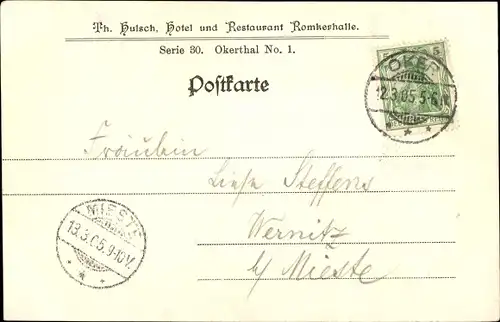 Th. Hutsch, Hotel und Restaurant Romkerhalle.
Serie 30. Okerthal No. 1.
Postkarte
5 5
OKER
12.3.05.5-6
Fräulein
Liese Steffens
Wernitz
b/ Mieste
MIESTE
13.3.05.9-10V.